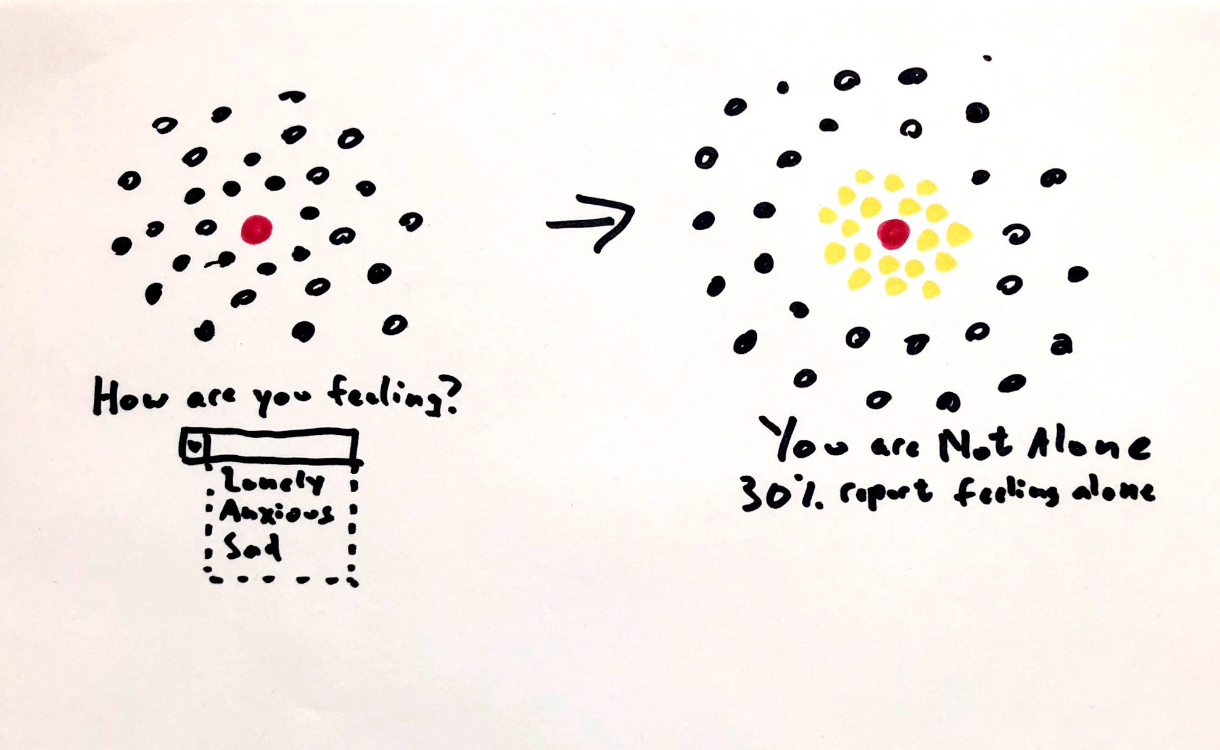 How are you feeling?
Lonely
Anxious
Sad
You are Not Alone
30% report feeling alone